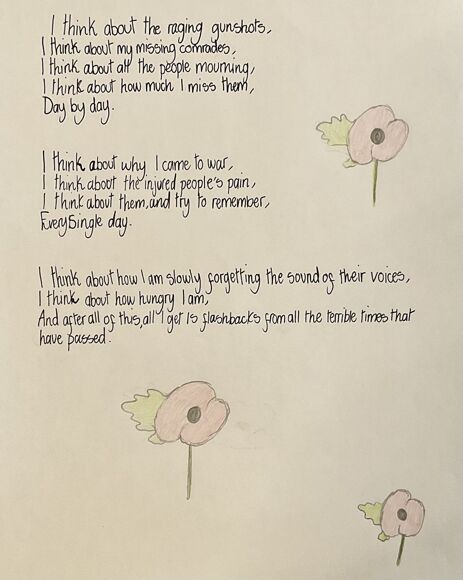 I think about the raging gunshots,
I think about my missing comrades,
I think about all the people mourning,
I think about how much I miss them,
Day by day.
I think about why I came to war,
I think about the injured people's pain,
I think about them, and try to remember,
Every Single day.
I think about how I am slowly forgetting the sound of their voices,
I think about how hungry I am,
And after all of this, all I get is flashbacks from all the terrible times that
have passed.